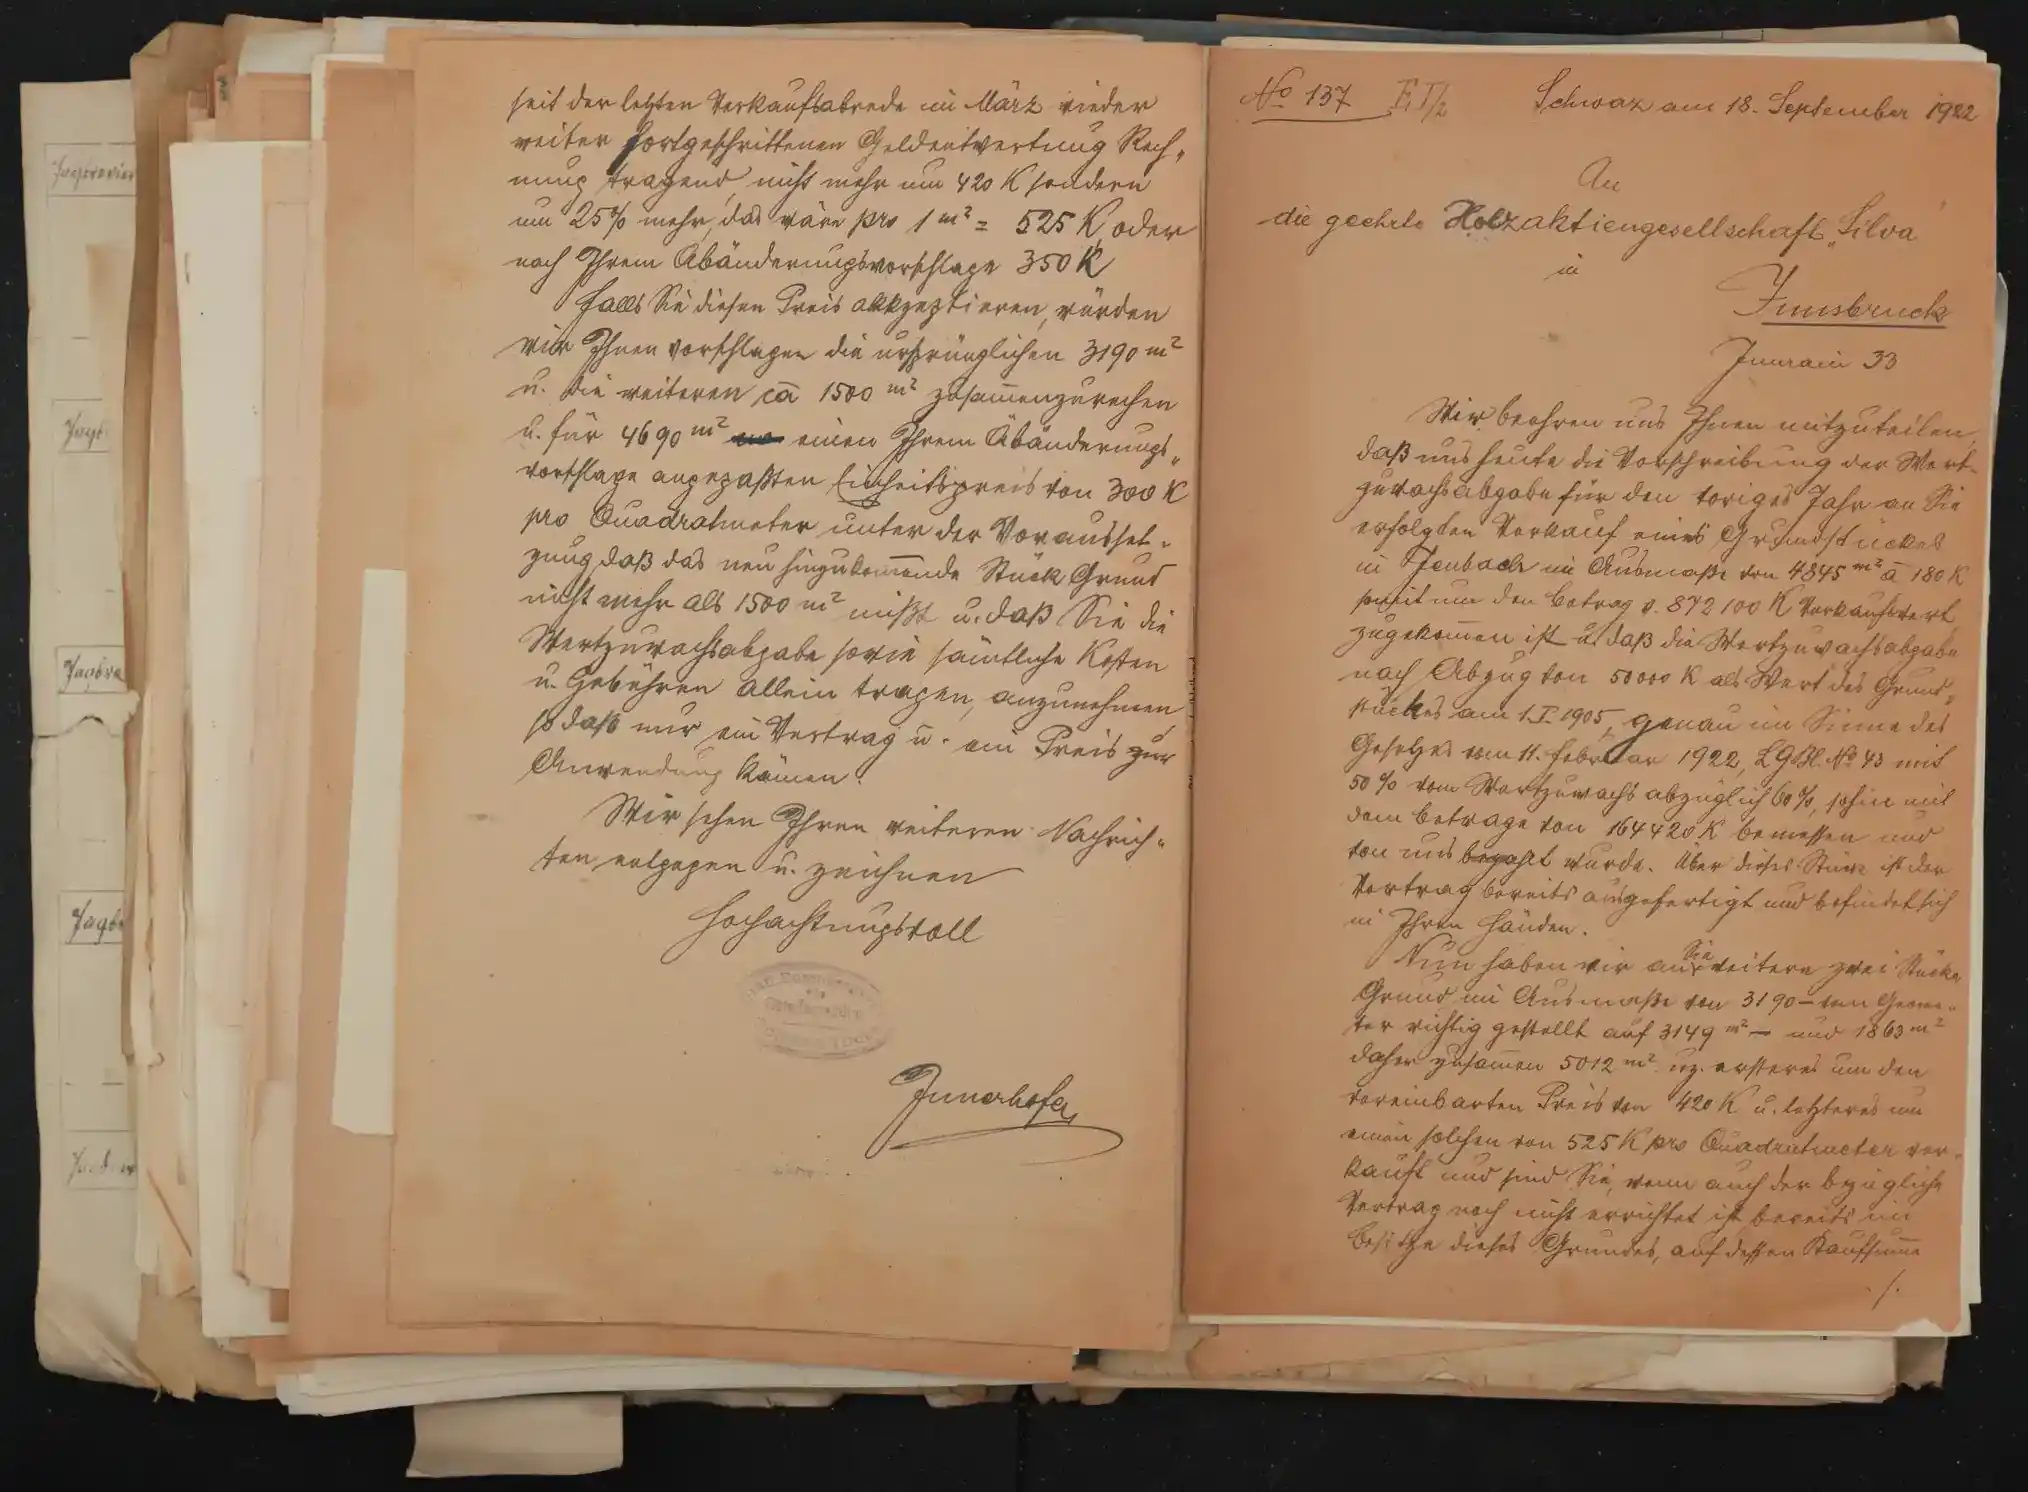 Jagdrevier
Jagd
Jagdre
Jagd
seit der letzten Verkaufsabrede im März wieder
weiter fortgeschrittenen Geldentwertung Rech„
nung tragend, nicht mehr um 420 K sondern
um 25% mehr, das wäre pro 1 m² = 525 K, oder
nach Ihrem Abänderungsvorschlage 350 K
Falls Sie diesen Preis akkzeptieren, würden
wir Ihnen vorschlagen die ursprünglichen 3190 m²
u. die weiteren ca 1500 m² zusam̄enzurechen
u. für 4690 m² einen Ihrem Abänderungs„
vorschlage angepaßten Einheitspreis von 300 K
pro Quadratmeter unter der Vorausset-
zung daß das neu hinzukom̄ende Stück Grund
nicht mehr als 1500 m² mißt u. daß Sie die
Wertzuwachsabgabe sowie sämtliche Kosten
u. Gebühren allein tragen, anzunehmen
so daß nur ein Vertrag u. ein Preis zur
Anwendung kämen.
Wir sehen Ihren weiteren Nachrich„
ten entgegen u. zeichnen
Hochachtungsvoll
Innerhofer
No 137 E.I/2 Schwaz am 18. September 1922
An
die geehrte Holzaktiengesellschaft „Silva"
in
Innsbruck
Innrain 33
Wir beehren uns Ihnen mitzuteilen,
daß uns heute die Vorschreibung der Wert-
zuwachsabgabe für den voriges Jahr an Sie
erfolgten Verkauf eines Grundstückes
in Jenbach im Ausmaße von 4845 m² à 180 K
somit um den Betrag v. 872100 K Verkaufswert
zugekom̄en ist u. daß die Wertzuwachsabgabe
nach Abzug von 50000 K als Wert des Grund„
stückes am 1.I.1905, genau im Sinne des
Gesetzes vom 11. Februar 1922, LGBl. No 43 mit
50% vom Wertzuwachs abzüglich 60%, sohin mit
dem Betrage von 164420 K bemessen und
von uns bezahlt wurde. Über dieses Stück ist der
Vertrag bereits ausgefertigt und befindet sich
in Ihren Händen.
Nun haben wir an Sie weitere zwei Stücke
Grund im Ausmaße von 3190 – vom Geome„
ter richtig gestellt auf 3149 m² – und 1863 m²
daher zusam̄en 5012 m² uz. ersteres um den
vereinbarten Preis von 420 K u. letzteres um
einen solchen von 525 K pro Quadratmeter ver-
kauft und sind Sie, wenn auch der bezügliche
Vertrag noch nicht errichtet ist bereits im
Besitze dieses Grundes, auf dessen Kaufsum̄e
./.